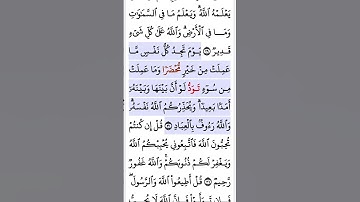 يَعْلَمْهُ ٱللَّهُ ۗ وَيَعْلَمُ مَا فِى ٱلسَّمَـٰوَٰتِ
وَمَا فِى ٱلْأَرْضِ ۗ وَٱللَّهُ عَلَىٰ كُلِّ شَىْءٍ
قَدِيرٌ ۝ يَوْمَ تَجِدُ كُلُّ نَفْسٍ مَّا
عَمِلَتْ مِنْ خَيْرٍ مُّحْضَرًا وَمَا عَمِلَتْ
مِن سُوٓءٍ تَوَدُّ لَوْ أَنَّ بَيْنَهَا وَبَيْنَهُۥٓ
أَمَدًۢا بَعِيدًا ۗ وَيُحَذِّرُكُمُ ٱللَّهُ نَفْسَهُۥ ۗ
وَٱللَّهُ رَءُوفٌۢ بِٱلْعِبَادِ ۝ قُلْ إِن كُنتُمْ
تُحِبُّونَ ٱللَّهَ فَٱتَّبِعُونِى يُحْبِبْكُمُ ٱللَّهُ
وَيَغْفِرْ لَكُمْ ذُنُوبَكُمْ ۗ وَٱللَّهُ غَفُورٌ
رَّحِيمٌ ۝ قُلْ أَطِيعُوا۟ ٱللَّهَ وَٱلرَّسُولَ ۖ
فَإِن تَوَلَّوْا۟ فَإِنَّ ٱللَّهَ لَا يُحِبُّ